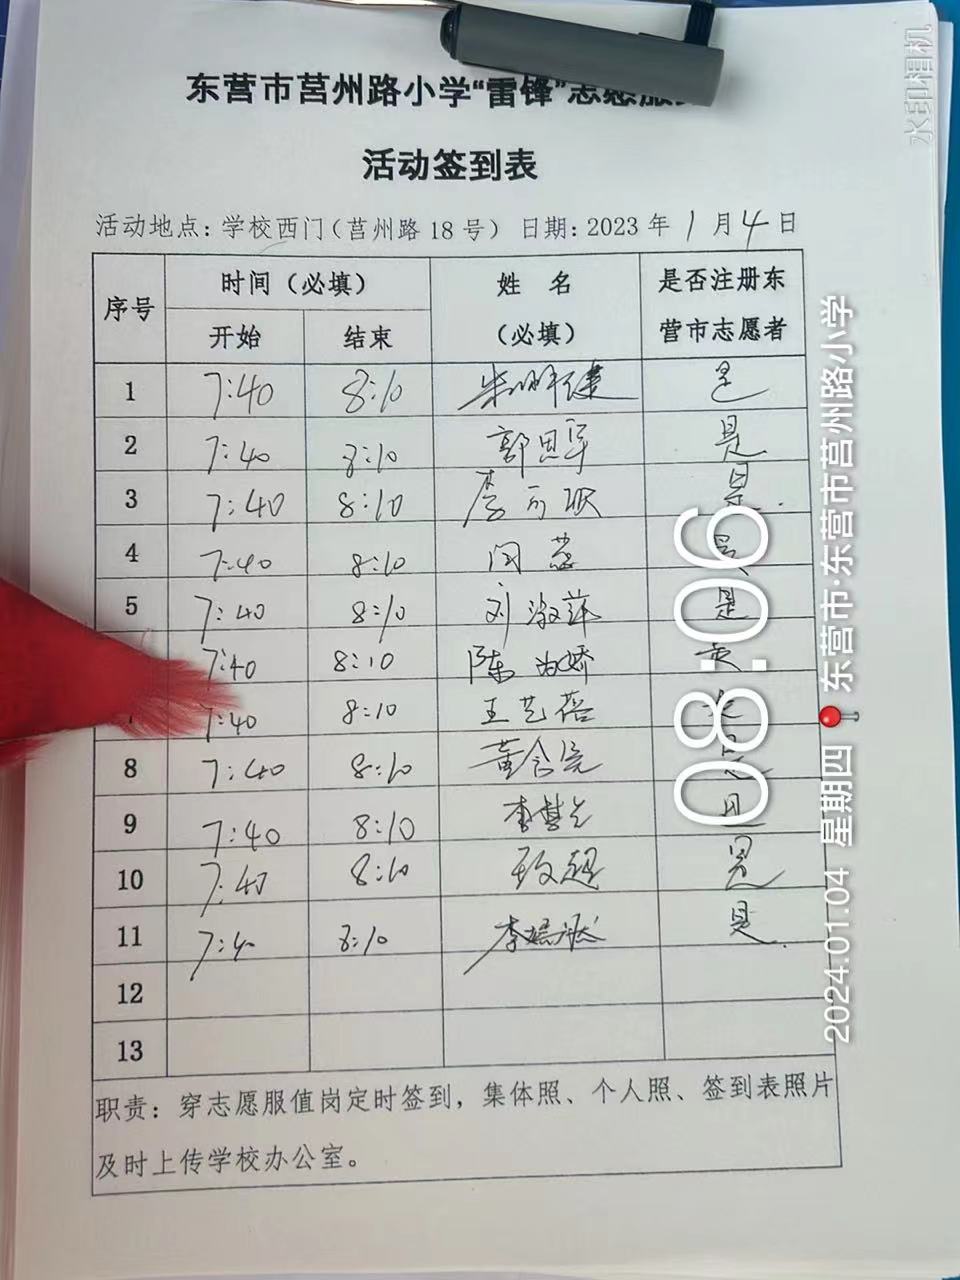 东营市莒州路小学“雷锋”志愿服
活动签到表
活动地点：学校西门（莒州路 18 号） 日期：2023 年 1 月 4 日
序号 时间（必填） 姓 名 是否注册东
开始 结束 （必填） 营市志愿者
1 7:40 8:10 是
2 7:40 8:10 郭思军 是
3 7:40 8:10 是
4 7:40 8:10 闫蕊 是
5 7:40 8:10 刘淑萍 是
7:40 8:10 陈 娇 是
7:40 8:10 王艺蓓 是
8 7:40 8:10 董会亮 是
9 7:40 8:10 李慧 是
10 7:40 8:10 是
11 7:40 8:10 李 是
12
13
职责：穿志愿服值岗定时签到，集体照、个人照、签到表照片
及时上传学校办公室。
水印相机
08:06
2024.01.04 星期四 东营市·东营市莒州路小学